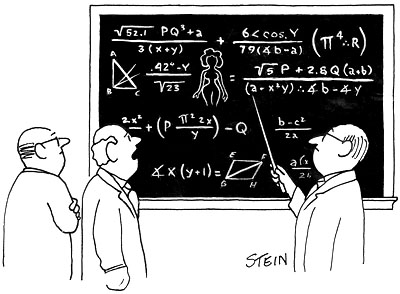 √52.1 PQ³+a / 3(x+y) + 6<cos.Y / 79(∡b-a) (π⁴∴R)
A B C .42"-Y / √23 = √5 P + 2.6Q(a+b) / (a-x²y)∴∡b-∡y
2x² + (P π²2x / y) - Q b-c² / 2x
∡x(y+1)= E F G H a(x / 2
STEIN